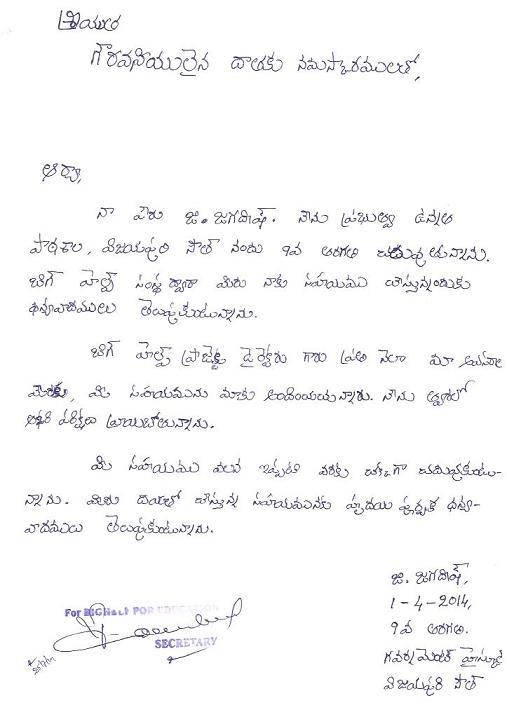 ప్రియమైన
గౌరవనీయులైన దాతకు నమస్కారములతో,
ఆర్యా,
నా పేరు జి. జగదీష్. నేను ప్రభుత్వ ఉన్నత
పాఠశాల, విజయపురి సౌత్ నందు 9వ తరగతి చదువుతున్నాను.
బిగ్ హెల్ప్ సంస్థ ద్వారా మీరు నాకు సహాయము చేస్తున్నందుకు
ధన్యవాదములు తెలుపుకుంటున్నాను.
బిగ్ హెల్ప్ ప్రాజెక్టు డైరెక్టరు గారు ప్రతి నెలా మా
మీ సహయమును మాకు అందించుచున్నారు. నేను త్వరలో
పరీక్షలు వ్రాయబోతున్నాను.
మీ సహాయము వలన ఇప్పటి వరకు చక్కగా చదువుకుంటు-
న్నాను. మీరు దయతో చేస్తున్న సహాయమునకు హృదయ పూర్వక ధన్య-
వాదములు తెలుపుకుంటున్నాను.
జి. జగదీష్,
1-4-2014,
9వ తరగతి.
గవర్నమెంట్ హైస్కూల్
విజయపురి సౌత్
For BIGHELP FOR EDUCATION
SECRETARY